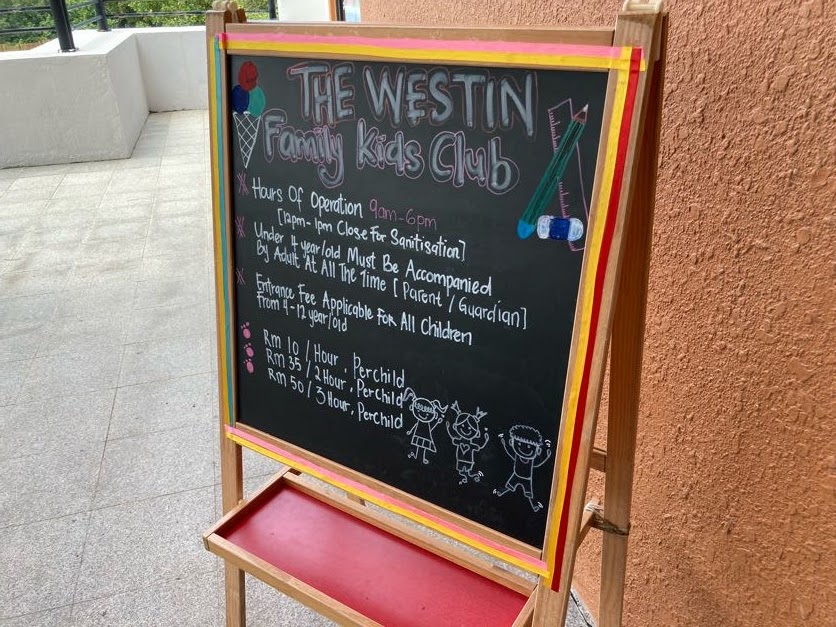 THE WESTIN
Family Kids Club
Hours Of Operation 9am-6pm
[12pm-1pm Close For Sanitisation]
Under 4 year/old Must Be Accompanied
By Adult At All The Time [Parent/Guardian]
Entrance Fee Applicable For All Children
From 4-12 year/old
Rm 10 / Hour, Perchild
Rm 35 / 2 Hour, Perchild
Rm 50 / 3 Hour, Perchild